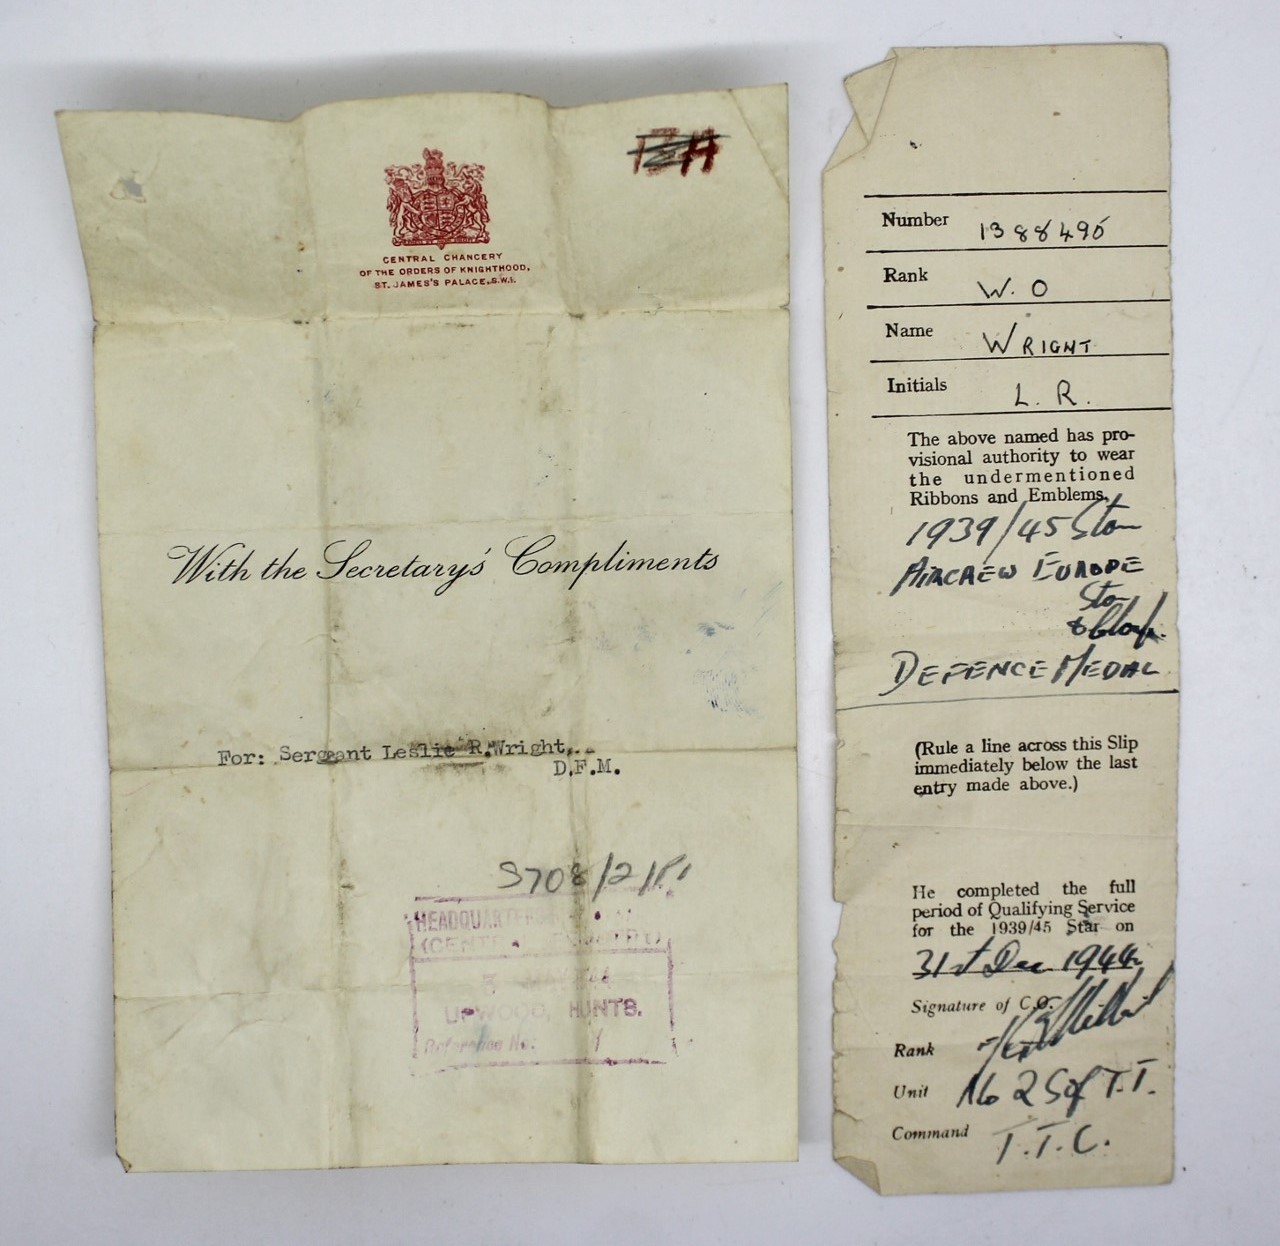 CENTRAL CHANCERY
OF THE ORDERS OF KNIGHTHOOD,
ST. JAMES'S PALACE, S.W.1.
With the Secretary's Compliments
For: Sergeant Leslie R.Wright,
D.F.M.
S708/2/P1
HEADQUARTERS
UPWOOD, HUNTS.
Reference No:
Number 1388495
Rank W.O
Name WRIGHT
Initials L. R.
The above named has pro-
visional authority to wear
the undermentioned
Ribbons and Emblems.
1939/45 Star
AIRCREW EUROPE
Star
& Clasp.
DEFENCE MEDAL
(Rule a line across this Slip
immediately below the last
entry made above.)
He completed the full
period of Qualifying Service
for the 1939/45 Star on
31st Dec 1944
Signature of C.O.
Rank
Unit No 2 S of T.T.
Command T.T.C.